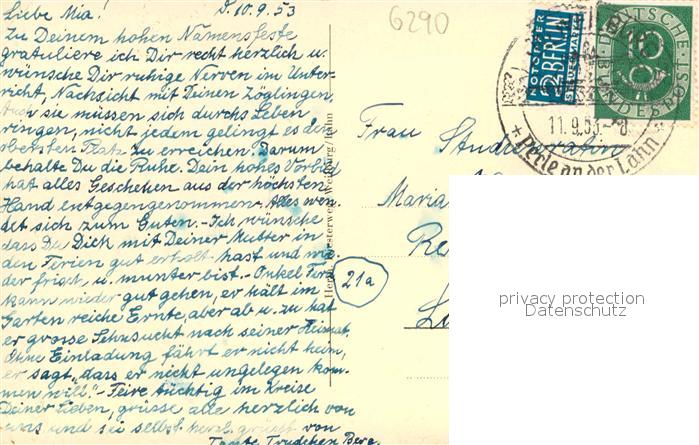 D. 10.9.53
6290
Liebe Mia!
Zu Deinem hohen Namensfeste
gratuliere ich Dir recht herzlich u.
wünsche Dir ruhige Nerven im Unter-
richt, Nachsicht mit Deinen Zöglingen,
Auch sie müssen sich durchs Leben
ringen, nicht jedem gelingt es den
obersten Platz zu erreichen. Darum
behalte Du die Ruhe. Dein hohes Vorbild
hat alles Geschehen aus der höchsten
Hand entgegengenommen. Alles wen-
det sich zum Guten. - Ich wünsche
dass Du Dich mit Deiner Mutter in
den Ferien gut erholt hast und wie
der frisch, u. munter bist. - Onkel Ferd
kann wieder gut gehen, er hält im
Garten reiche Ernte, aber ab u. zu hat
er grosse Sehnsucht nach seiner Heimat.
Ohne Einladung fährt er nicht heim,
er sagt, dass er nicht ungelegen kom-
men will." - Feire tüchtig im Kreise
Deiner Lieben, grüsse alle herzlich von
uns und sei selbst herzl. gegrüßt von
Tante Trudchen Berg.
NOTOPFER
2 BERLIN
STEUERMARKE
DEUTSCHE
BUNDESPOST
10
11.9.53.-8
* Perle an der Lahn *
Frau Studienrätin
Maria
21a
Weilburg/Lahn
privacy protection
Datenschutz